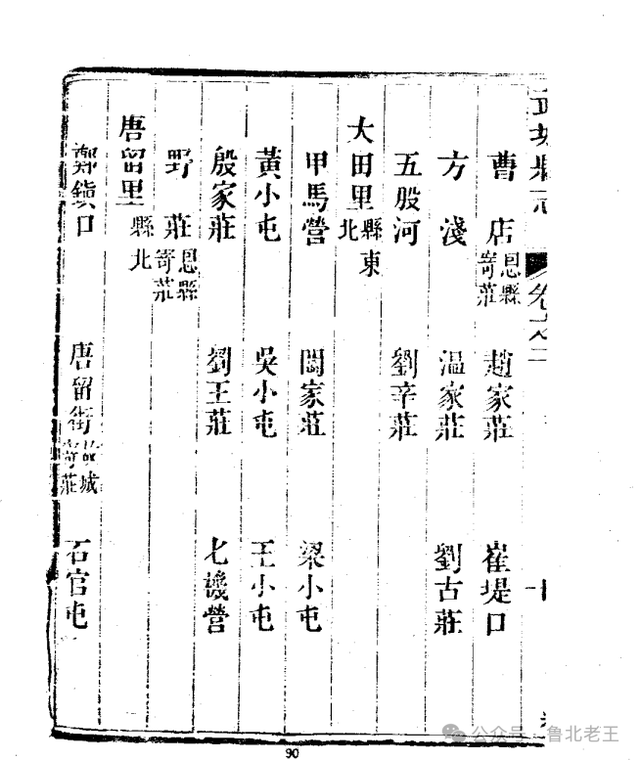 武城縣志 卷之二
曹店 恩縣寄莊 趙家莊 崔堤口
方淺 温家莊 劉古莊
五股河 劉辛莊
大田里 縣東北
甲馬營 閻家莊 梁小屯
黃小屯 吳小屯 王小屯
殷家莊 劉王莊 七機營
野莊 恩縣寄莊
唐留里 縣北
鄭鎮口 唐留街 故城寄莊 石官屯
90
公众号 · 鲁北老王